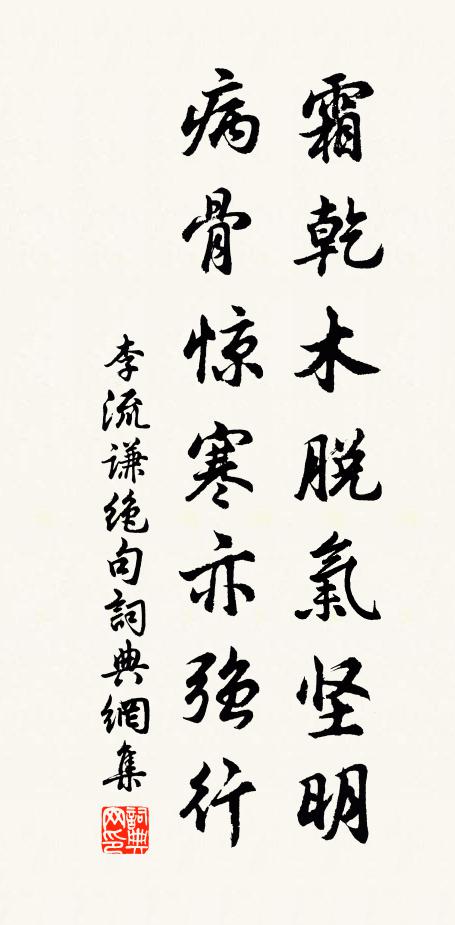 霜乾木脱氣坚明
病骨惊寒亦強行
李流谦绝句詞典網集
詞典网印